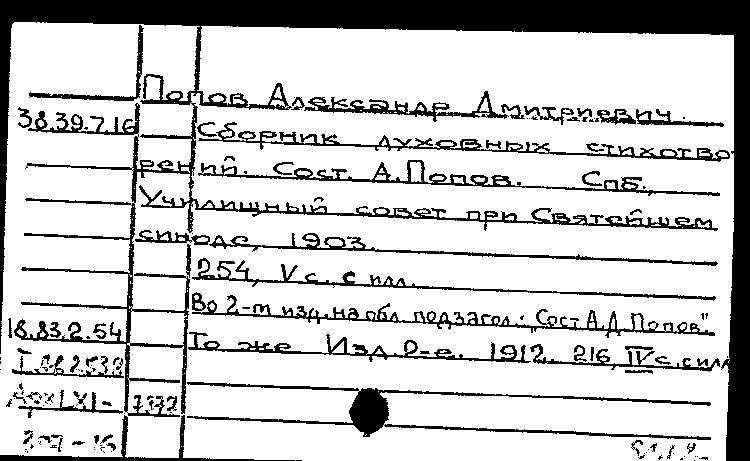 Попов, Александр Дмитриевич.
38.39.7.16 Сборник духовных стихотво
рений. Сост. А. Попов. Спб.,
Училищный совет при Святейшем
синоде, 1903.
254, V с., с илл.
Во 2-м изд. на обл. подзагол.: "Сост А.Д. Попов".
18.83.2.54 То же Изд. 2-е. 1912. 216, IV с. с илл
7372
307-16